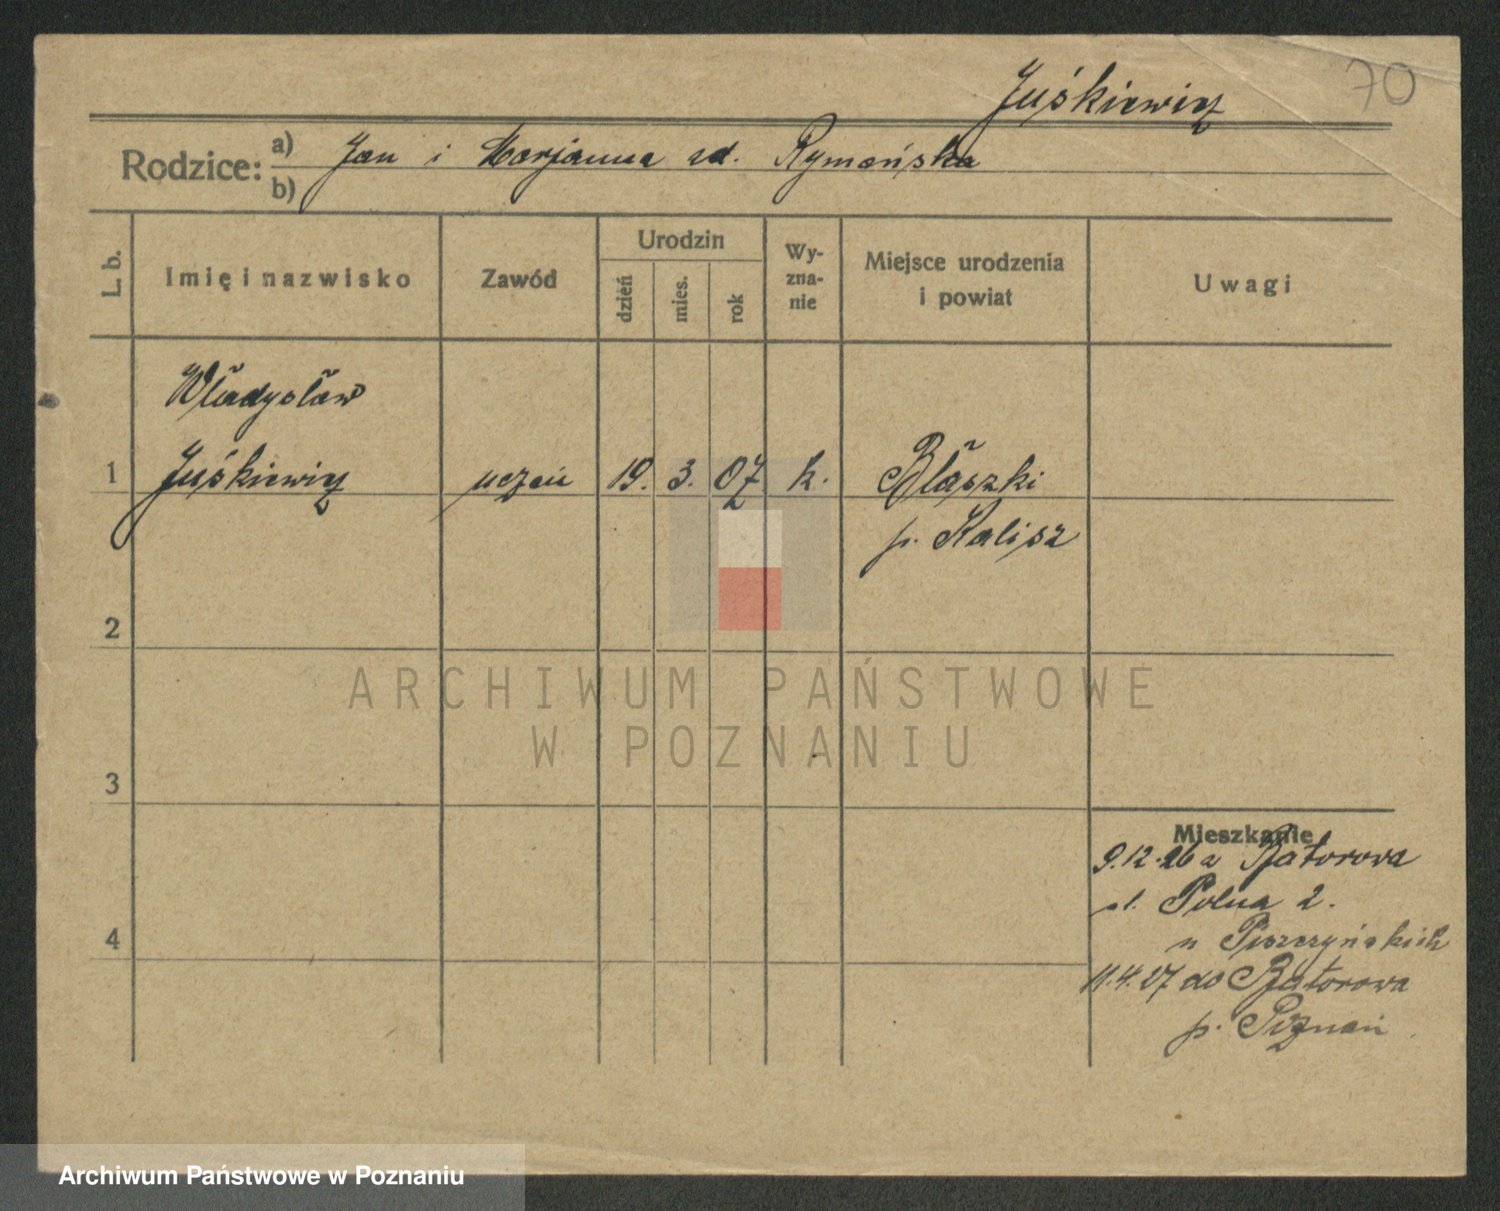 70
Juśkiewicz
Rodzice: a) Jan i Marjanna zd. Rymańska
b)
L. b.
Imię i nazwisko
Zawód
Urodzin
dzień
mies.
rok
Wy-
zna-
nie
Miejsce urodzenia
i powiat
Uwagi
Władysław
1 Juśkiewicz uczeń 19. 3. 07 k. Błaszki
p. Kalisz
2
3
4
Mieszkanie
9.12.26 z Batorowa
ul. Polna 2.
u Piszczyńskich
11.4.27 do Batorowa
p. Poznań
ARCHIWUM PAŃSTWOWE
W POZNANIU
Archiwum Państwowe w Poznaniu